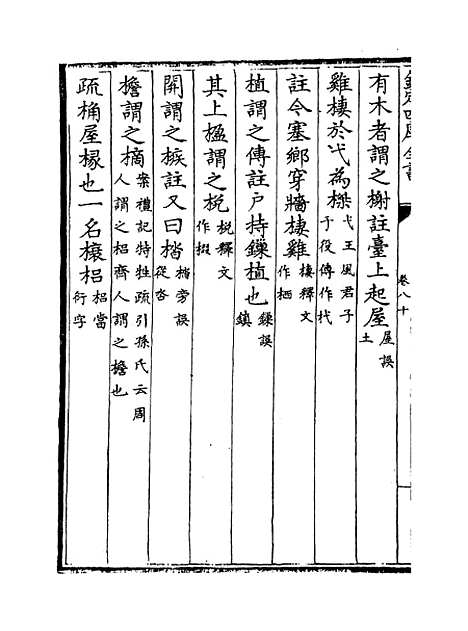 欽定四庫全書
卷八十
有木者謂之榭註臺上起屋屋誤土
雞棲於弋為榤弋王風君子于役傳作杙
註今塞鄉穿牆棲雞棲釋文作栖
植謂之傳註户持鏁植也鏁誤鎮
其上楹謂之梲梲釋文作掇
開謂之槉註又曰楷楷旁誤從沓
檐謂之樀案禮記特牲疏引孫氏云周人謂之梠齊人謂之檐也
疏桷屋椽也一名榱梠梠當衍字